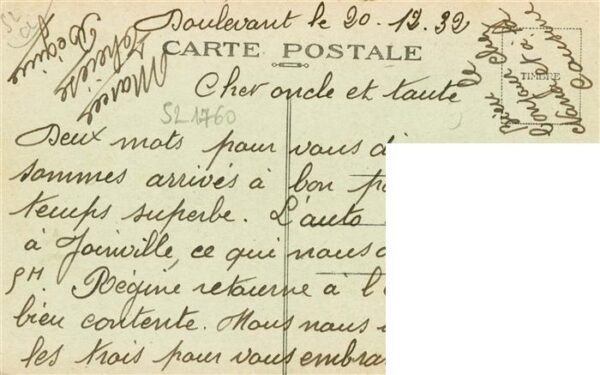 Doulevant le 20.12.32
CARTE POSTALE
Cher oncle et tante
TIMBRE
52 1760
Deux mots pour vous d
sommes arrivés à bon po
temps superbe. L'auto
à Joinville, ce qui nous a
9H. Régine retourne à l'
bien contente. Nous nous
les trois pour vous embra
Marcel
Régine